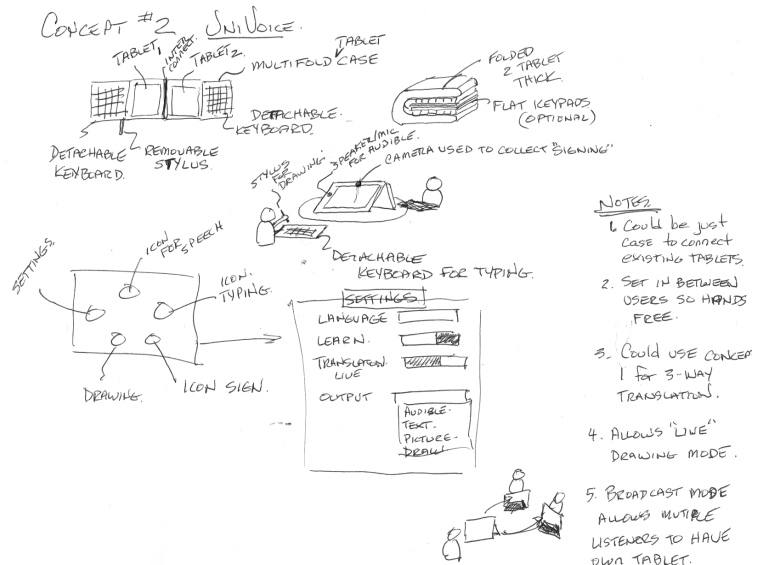 CONCEPT #2 UNIVOICE.
TABLET 1
INTER
CONNECT.
TABLET 2.
MULTIFOLD CASE
TABLET
DETACHABLE
KEYBOARD.
REMOVABLE
STYLUS.
DETACHABLE.
KEYBOARD.
FOLDED
2 TABLET
THICK.
FLAT KEYPADS
(OPTIONAL)
STYLUS
FOR
DRAWING.
SPEAKER/MIC
FOR AUDIBLE.
CAMERA USED TO COLLECT "SIGNING"
DETACHABLE
KEYBOARD FOR TYPING.
SETTINGS.
ICON
FOR SPEECH
ICON.
TYPING.
DRAWING.
ICON SIGN.
SETTINGS.
LANGUAGE
LEARN.
TRANSLATION.
LIVE
OUTPUT
AUDIBLE.
TEXT.
PICTURE.
DRAW
NOTES.
1. Could be just
case to connect
existing tablets.
2. SET IN BETWEEN
USERS SO HANDS
FREE.
3. Could use CONCEP
1 for 3-WAY
TRANSLATION.
4. ALLOWS "LIVE"
DRAWING MODE.
5. BROADCAST MODE
ALLOWS MUTIPLE
LISTENERS TO HAVE
OWN TABLET.